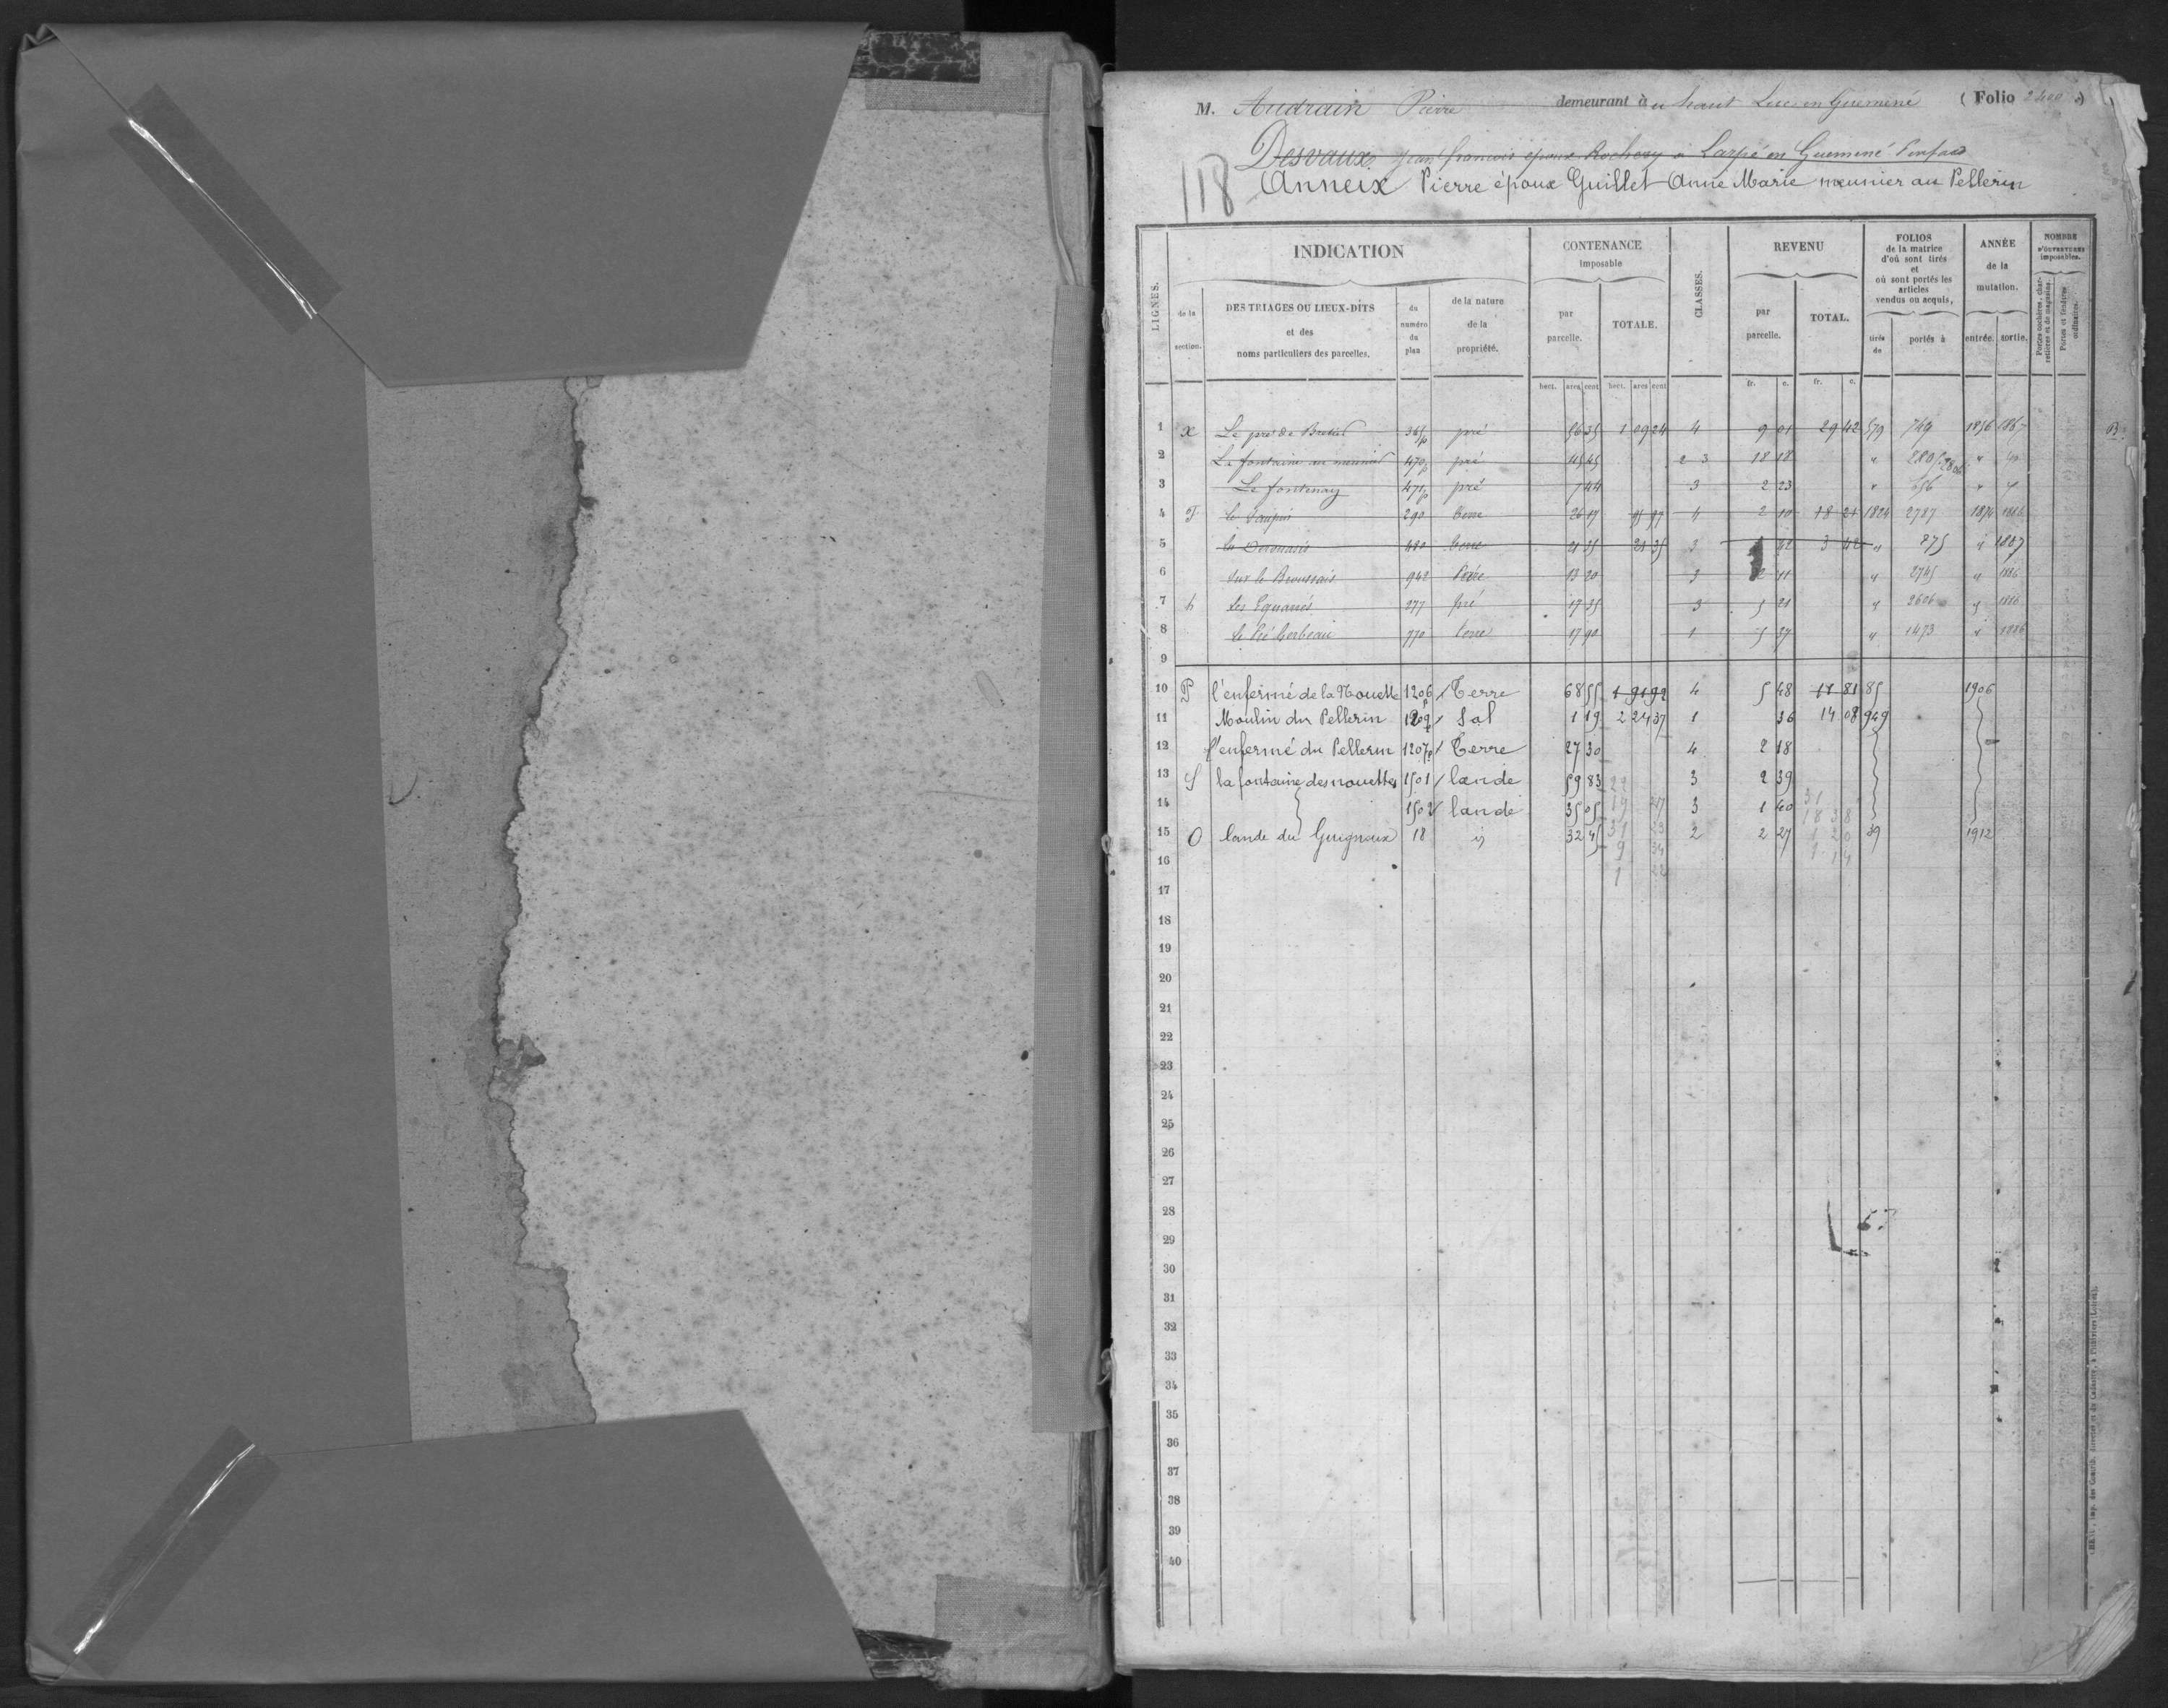 M. Audrain Pierre demeurant à haut Luc en Guemené (Folio 2400 )
Desvaux Jean françois époux à Larpé en Guemené Penfao
118 Anneix Pierre époux Guillet Anne Marie meunier au Pellerin
LIGNES.
INDICATION
de la section.
DES TRIAGES OU LIEUX-DITS et des noms particuliers des parcelles.
du numéro du plan
de la nature de la propriété.
CONTENANCE imposable
par parcelle.
TOTALE.
CLASSES.
REVENU
par parcelle.
TOTAL.
FOLIOS de la matrice d'où sont tirés et où sont portés les articles vendus ou acquis,
tirés de
portés à
ANNÉE de la mutation.
entrée. sortie.
NOMBRE D'OUVERTURES imposables.
Portes cochères, charretières et de magasins.
Portes et fenêtres ordinaires.
hect. ares cent hect. ares cent fr. c. fr. c.
1 X Le pré de 365p pré 56 35 1 09 24 4 9 01 29 42 579 749 1856 1867
2 La fontaine au 470p pré 45 45 2 3 18 18 " 2805 2806 "
3 Le fontenay 471p pré 7 44 3 2 23 " 556 "
4 F 290 terre 26 17 95 97 4 2 10 18 21 1824 2787 1874 1886
5 480 terre 21 35 21 35 3 42 3 42 " 875 " 1887
6 Sur le 942 13 20 3 2 11 " 2745 " 1886
7 h les 277 pré 17 35 3 5 21 " 2606 " 1886
8 le Pré 770 terre 17 90 1 5 37 " 1473 " 1886
9
10 P l'enfermé de la Nouette 1206 Terre 68 55 1 91 92 4 5 48 11 81 85 1906
11 Moulin du Pellerin 1209 Sol 1 19 2 24 37 1 36 14 08 949
12 l'enfermé du Pellerin 1207p Terre 27 30 4 2 18
13 S la fontaine des nouettes 1501 lande 59 83 3 2 39
14 1502 lande 35 05 3 1 40
15 O lande du Guignoux 18 id 32 45 2 2 27 39 1912
16
17
18
19
20
21
22
23
24
25
26
27
28
29
30
31
32
33
34
35
36
37
38
39
40